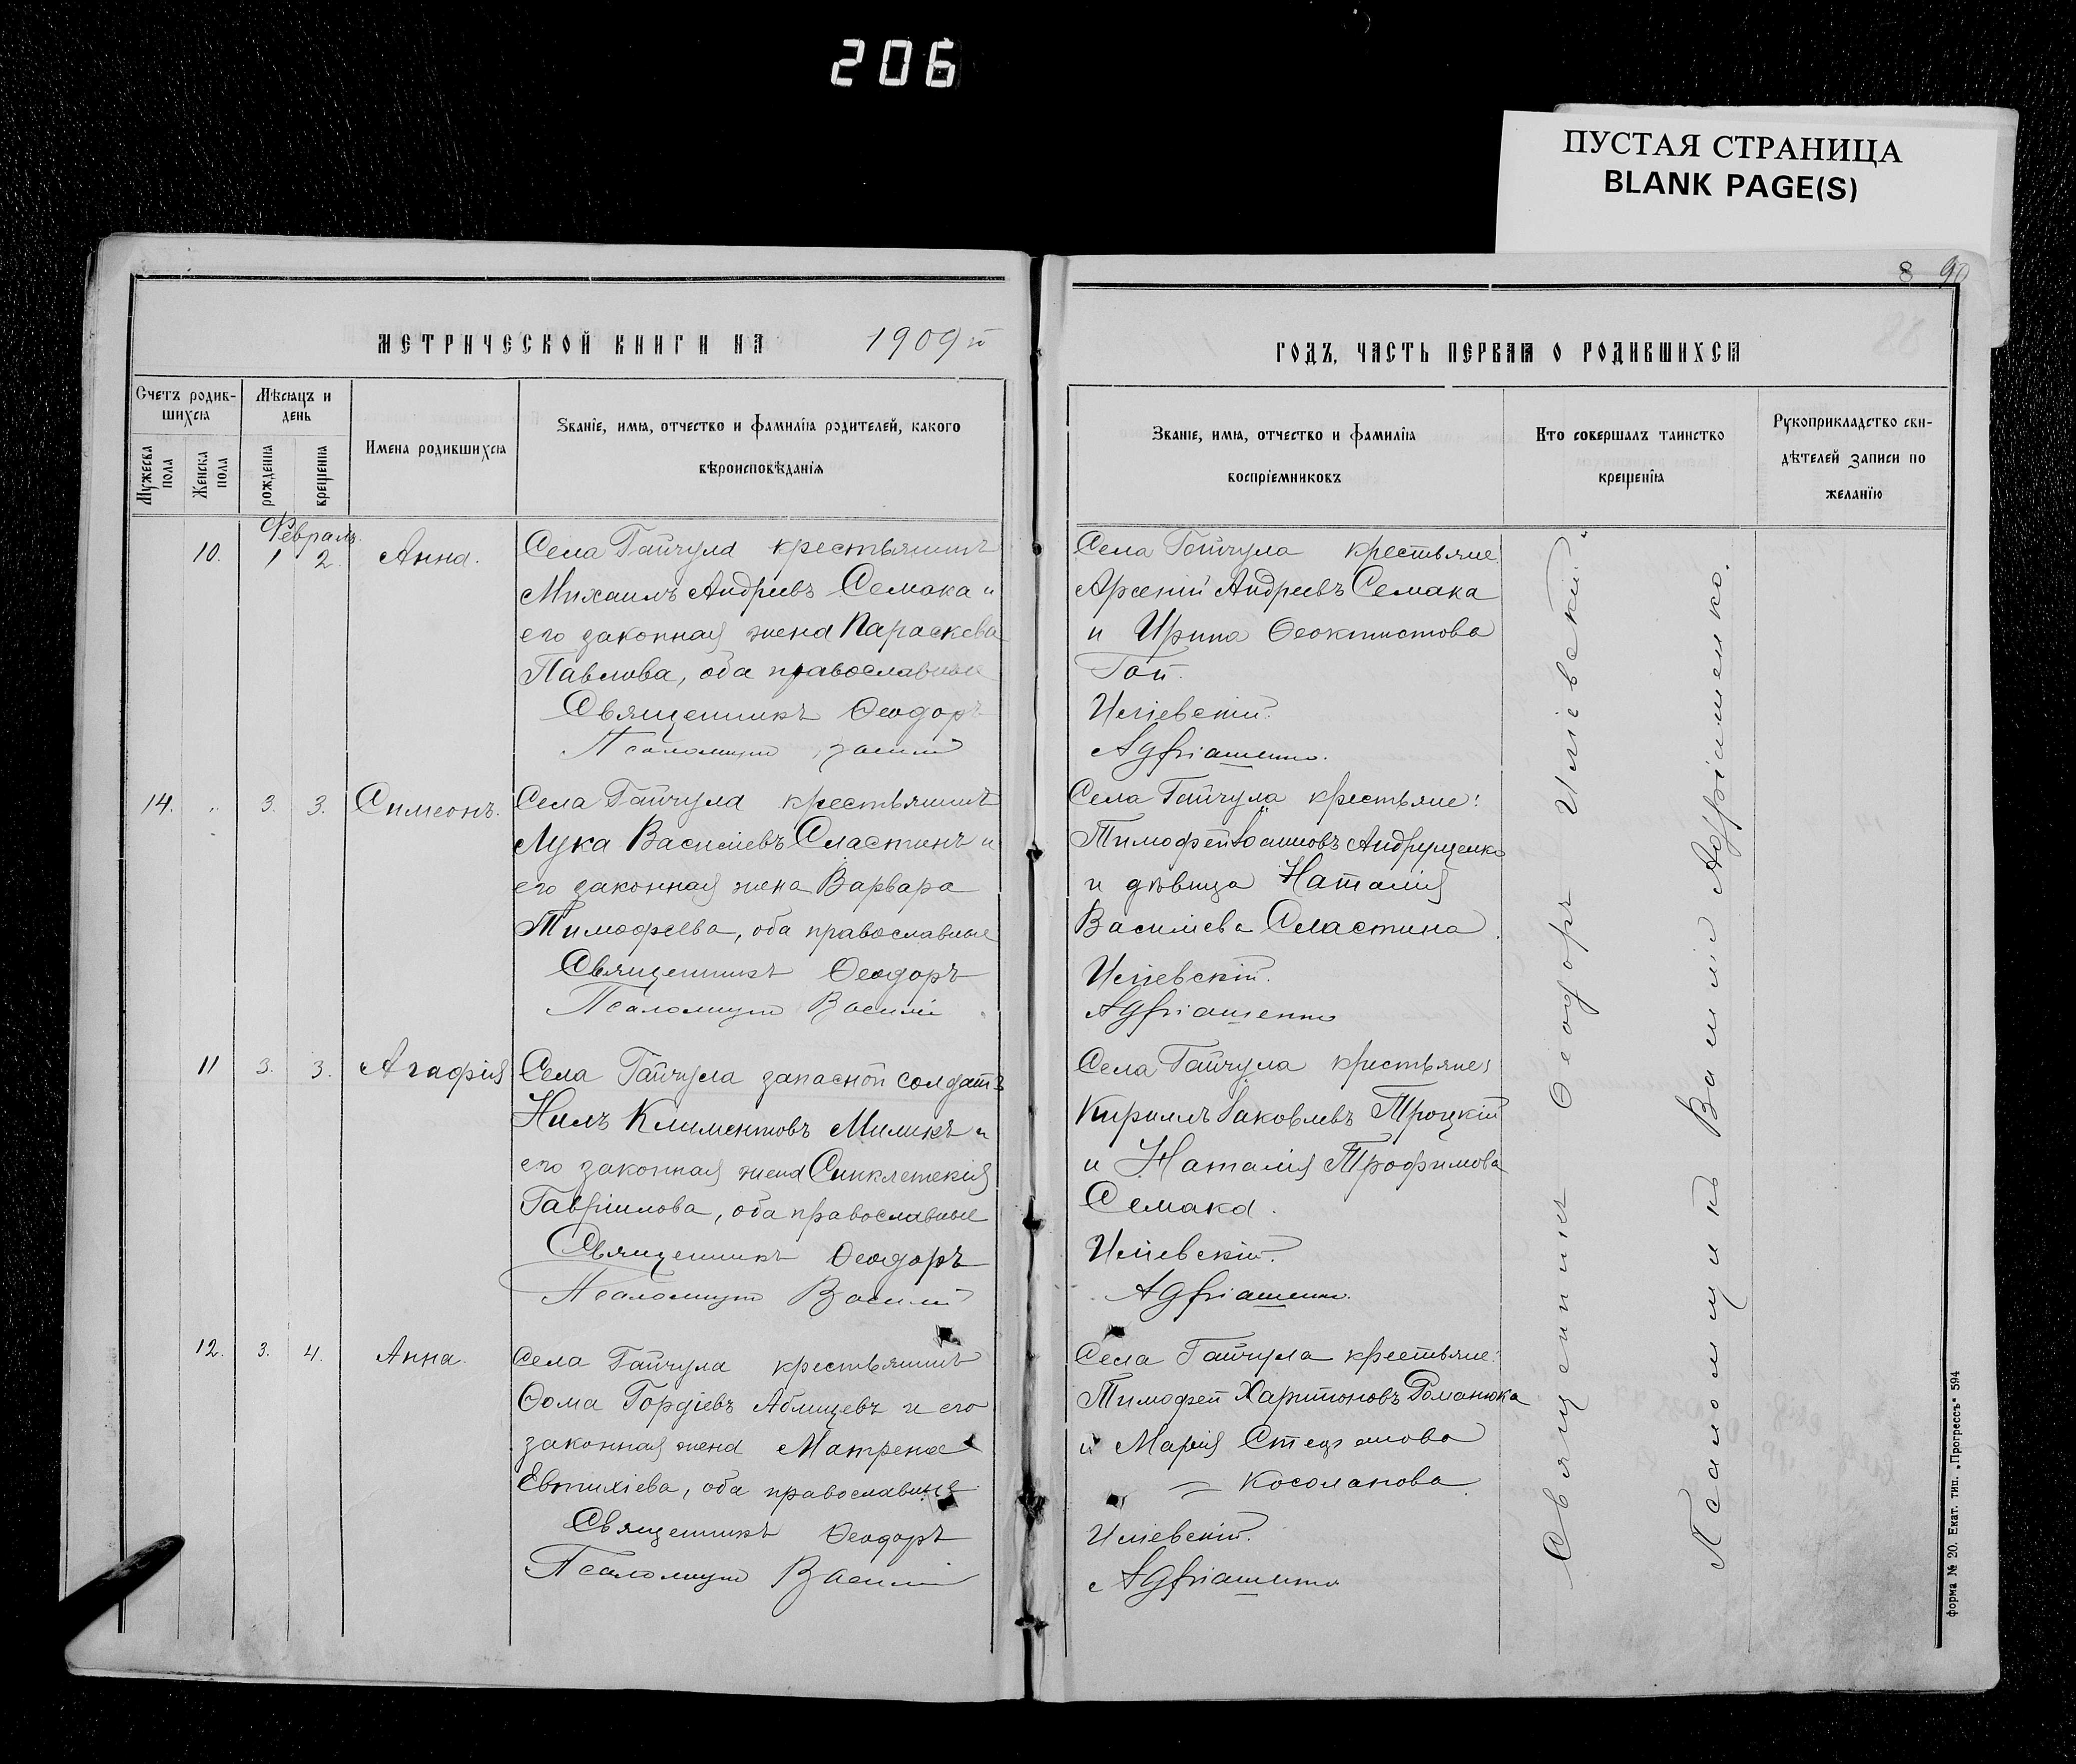 206
ПУСТАЯ СТРАНИЦА
BLANK PAGE(S)
8 90
МЕТРИЧЕСКОЙ КНИГИ НА 1909й
Счетъ родившихся
Мѣсяцъ и день
Имена родившихся
Званіе, имя, отчество и фамилія родителей, какого
вѣроисповѣданія
Мужеска пола
Женска пола
рожденія
крещенія
Февраль
10. 1 2. Анна.
Села Гайчула крестьянинъ
Михаилъ Андреевъ Семака и
его законная жена Параскева
Павлова, оба православные
Священникъ Ѳеодоръ
Псаломщикъ
14. " 3. 3. Симеонъ.
Села Гайчула крестьянинъ
Лука Василіевъ Сластинъ и
его законная жена Варвара
Тимофеева, оба православные
Священникъ Ѳеодоръ
Псаломщикъ Василій
11 3. 3. Агафія
Села Гайчула запасной солдатъ
Нилъ Климентовъ Миликъ и
его законная жена Синклетекія
Гавріилова, оба православные
Священникъ Ѳеодоръ
Псаломщикъ Василій
12. 3. 4. Анна.
Села Гайчула крестьянинъ
Ѳома Гордіевъ Аблицевъ и его
законная жена Матрена
Евтихіева, оба православные
Священникъ Ѳеодоръ
Псаломщикъ Василій
ГОДЪ, ЧАСТЬ ПЕРВАЯ О РОДИВШИХСЯ
Званіе, имя, отчество и фамилія
воспріемниковъ
Кто совершалъ таинство
крещенія
Рукоприкладство сви-
дѣтелей записи по
желанію
Села Гайчула крестьяне:
Арсеній Андреевъ Семака
и Ирина Ѳеоктистова
Гой.
Иліевскій.
Адріашенко.
Села Гайчула крестьяне:
Тимофей Іоанновъ Андрущенко
и дѣвица Наталія
Василіева Сластина.
Иліевскій.
Адріашенко
Села Гайчула крестьяне:
Кириллъ Іаковлевъ Троцкій
и Наталія Трофимова
Семака.
Иліевскій.
Адріашенко.
Села Гайчула крестьяне:
Тимофей Харитоновъ Романюка
и Марія Стефанова
= Косоланова.
Иліевскій.
Адріашенко
Священникъ Ѳеодоръ Иліевскій.
Псаломщикъ Василій Адріашенко.
Форма № 20. Екат. тип. „Прогрессъ" 594